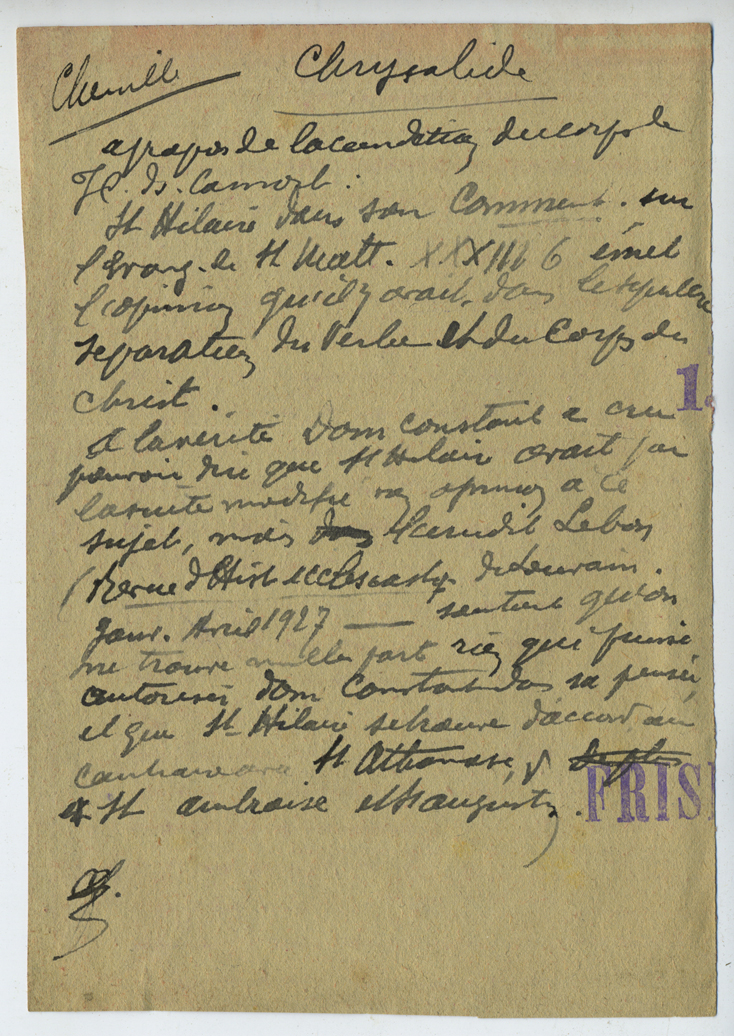 Chenille Chrysalide
a propos de la condition du corps de
J.C. ds. la mort :
St Hilaire dans son Comment. sur
l'Evang. de St Matt. XXXIII 6 émet
l'opinion qu'il y avait, dans le sepulcre
separation du Verbe et du Corps du
Christ.
A la vérité Dom Constant a cru
pouvoir dire que St Hilaire avait par
la suite modifié son opinion à ce
sujet, mais l'erudit Lebon
(Revue d'Hist ecclesiastiq de Louvain.
Janv. Avril 1927 — soutient qu'on
ne trouve nulle part rien qui puisse
autoriser dom Constant dans sa pensée,
et que St Hilaire se trouve d'accord, au
contraire avec St Athanase,
& St Ambroise et St Augustin.
1
FRIS